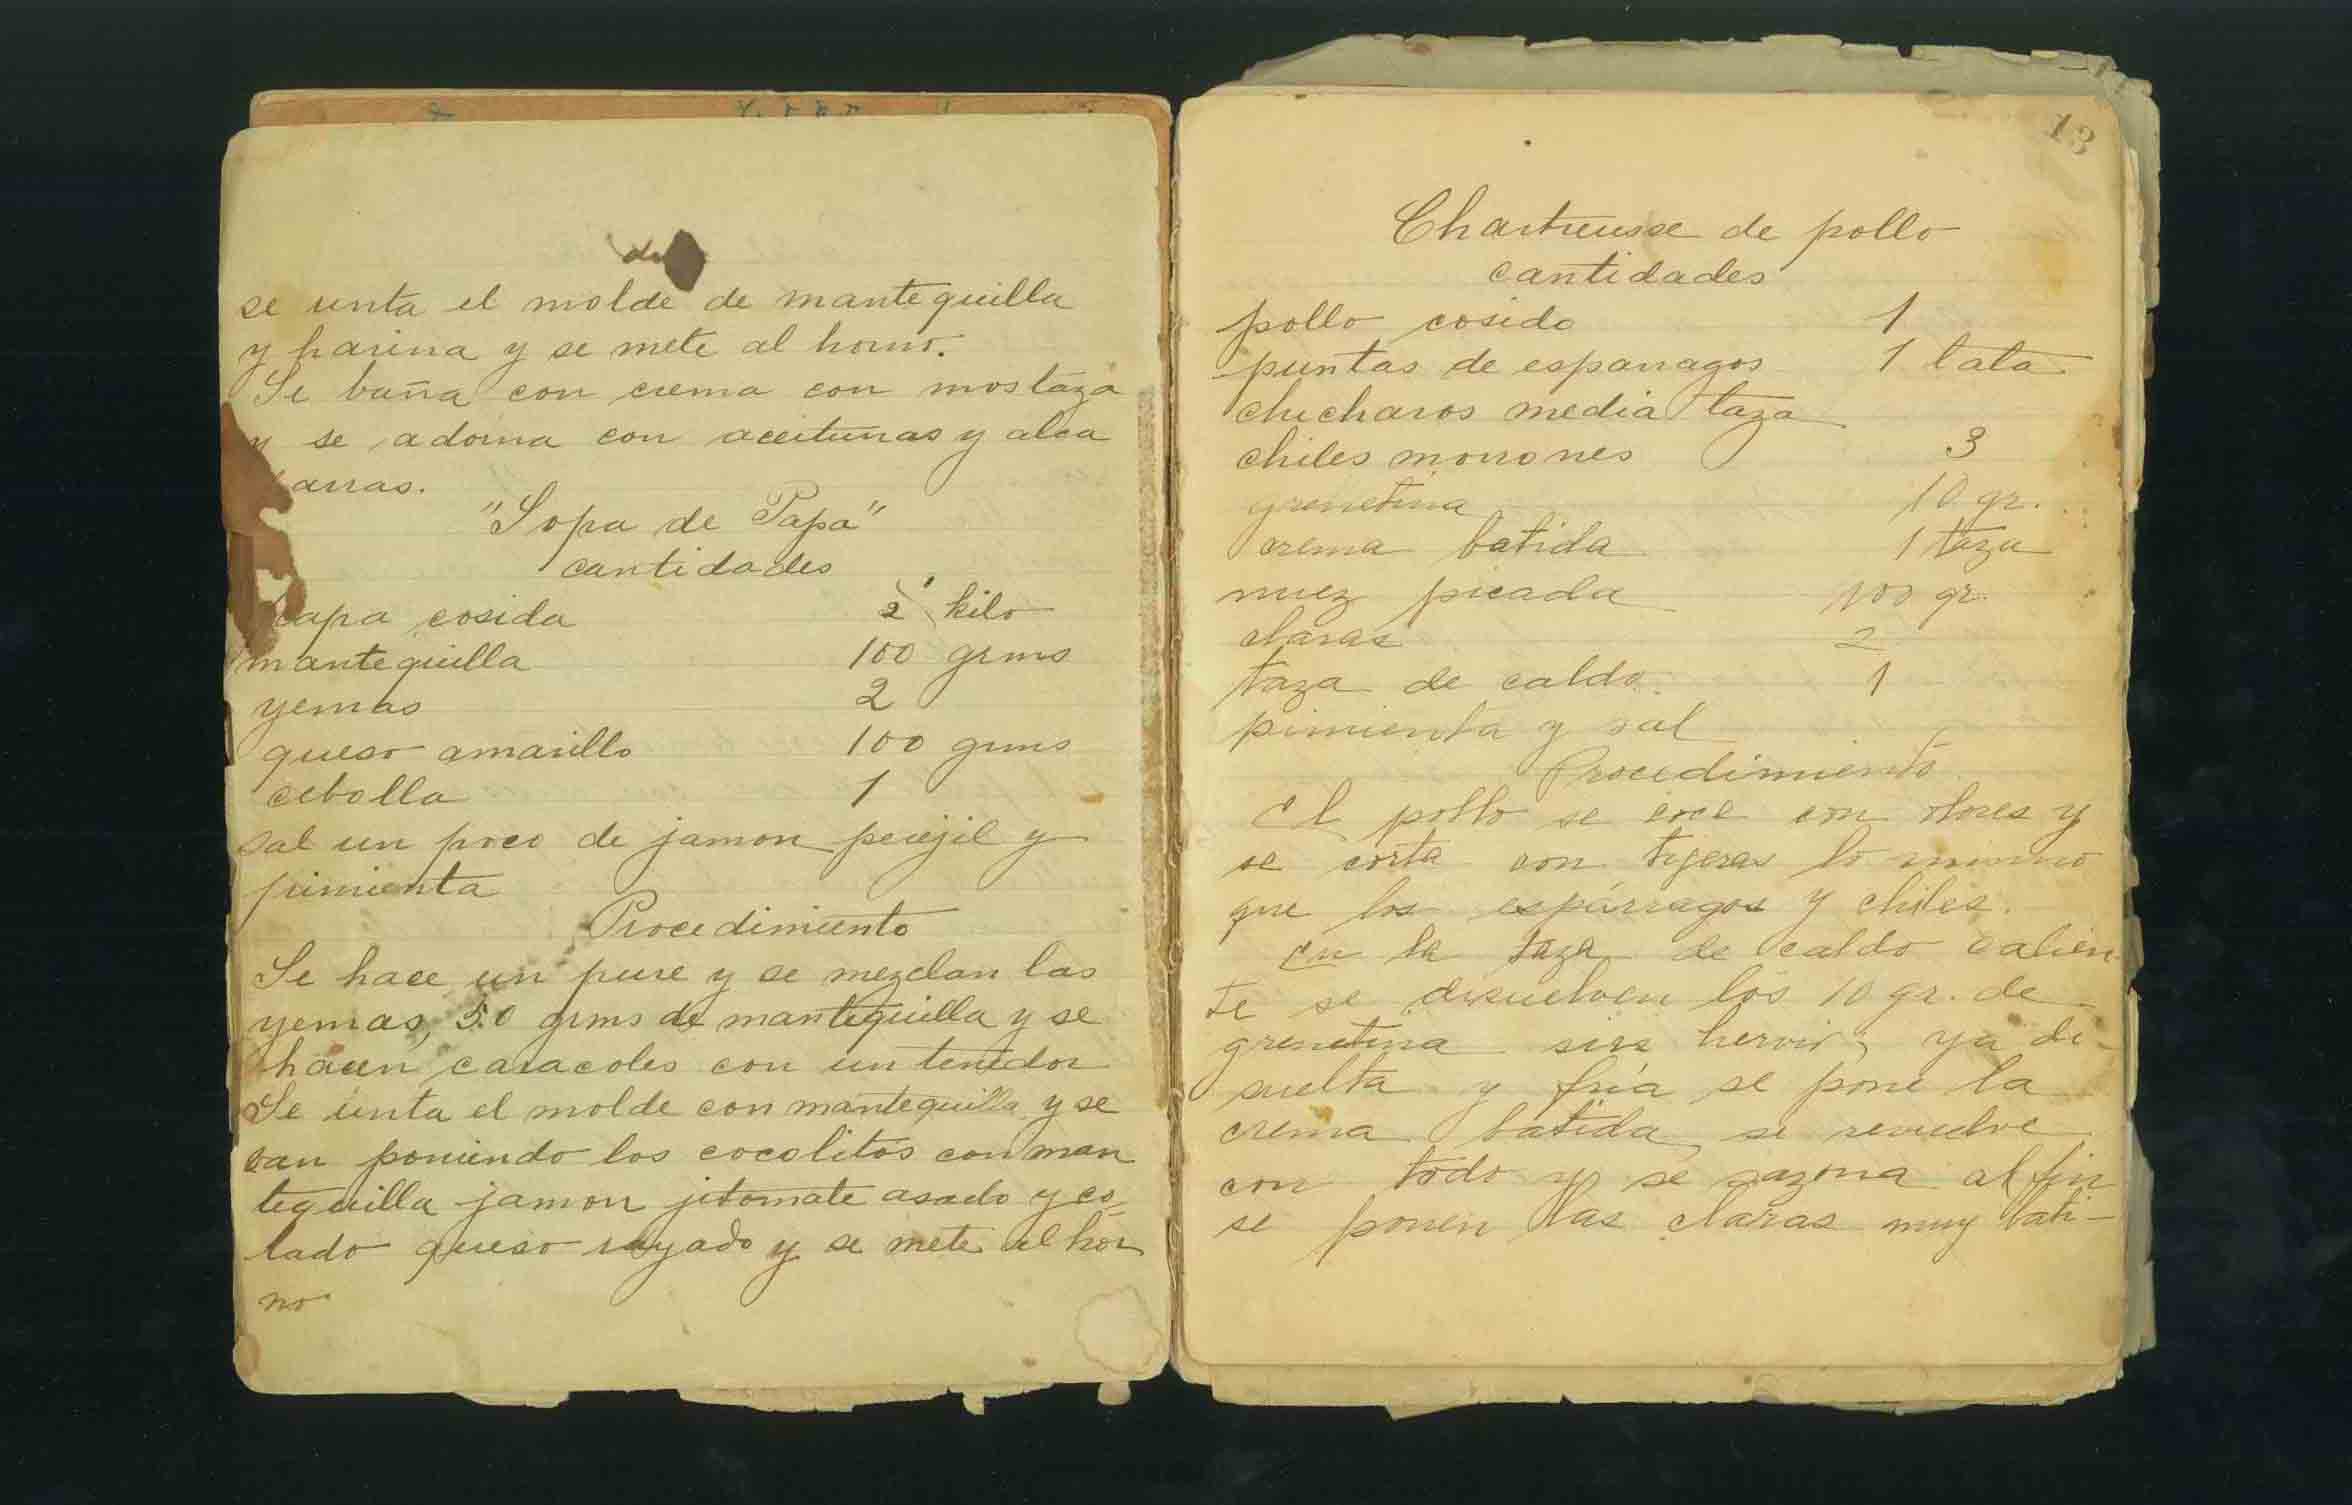 se unta el molde de mantequilla
y harina y se mete al horno.
Se baña con crema con mostaza
y se adorna con aceitunas y alca
arras.
"Sopa de Papa"
cantidades
papa cosida 2 kilo
mantequilla 100 grms
yemas 2
queso amarillo 100 grms
cebolla 1
sal un poco de jamon perejil y
pimienta
Procedimiento
Se hace un pure y se mezclan las
yemas, 50 grms de mantequilla y se
hacen caracoles con un tenedor
Se unta el molde con mantequilla y se
van poniendo los cocolitos con man
tequilla jamon jitomate asado y co-
lado queso rayado y se mete al hor
no
13
Chartreusse de pollo
cantidades
pollo cosido 1
puntas de esparragos 1 lata
chicharos media taza
chiles morrones 3
grenetina 10 gr.
crema batida 1 taza
nuez picada 100 gr.
claras 2
taza de caldo 1
pimienta y sal
Procedimiento
El pollo se coce con olores y
se corta con tijeras lo mismo
que los espárragos y chiles.
En la taza de caldo calien
te se disuelven los 10 gr. de
grenetina sin hervir, ya di-
suelta y fría se pone la
crema batida, se revuelve
con todo y se sazona al fin
se ponen las claras muy bati-